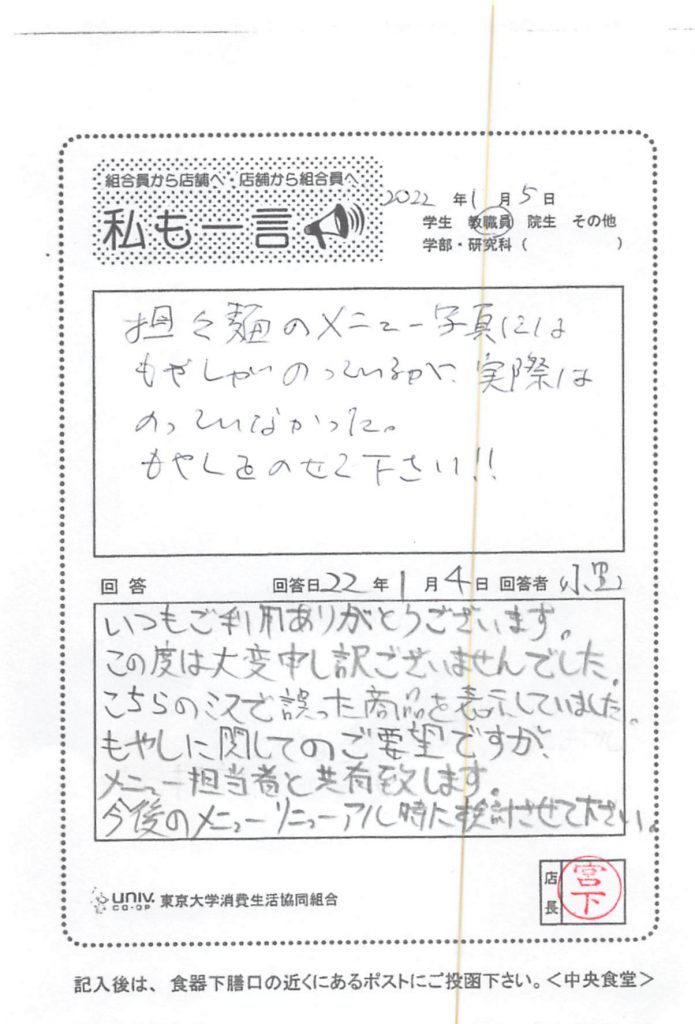 組合員から店舗へ・店舗から組合員へ
私も一言
2022 年 1 月 5 日
学生 教職員 院生 その他
学部・研究科( )
担々麺のメニュー写真には
もやしがのっているが、実際は
のっていなかった。
もやしをのせて下さい!!
回答 回答日 22 年 1 月 4 日 回答者 小黒
いつもご利用ありがとうございます。
この度は大変申し訳ございませんでした。
こちらのミスで誤った商品を表示していました。
もやしに関してのご要望ですが、
メニュー担当者と共有致します。
今後のメニューリニューアル時に検討させて下さい。
univ. CO-OP 東京大学消費生活協同組合
店長 宮下
記入後は、食器下膳口の近くにあるポストにご投函下さい。<中央食堂>